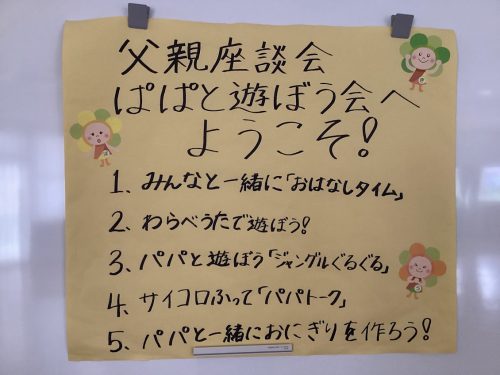 父親座談会
ぱぱと遊ぼう会へ
ようこそ!
1、みんなと一緒に「おはなしタイム」
2、わらべうたで遊ぼう!
3、パパと遊ぼう「ジャングルぐるぐる」
4、サイコロふって「パパトーク」
5、パパと一緒におにぎりを作ろう!